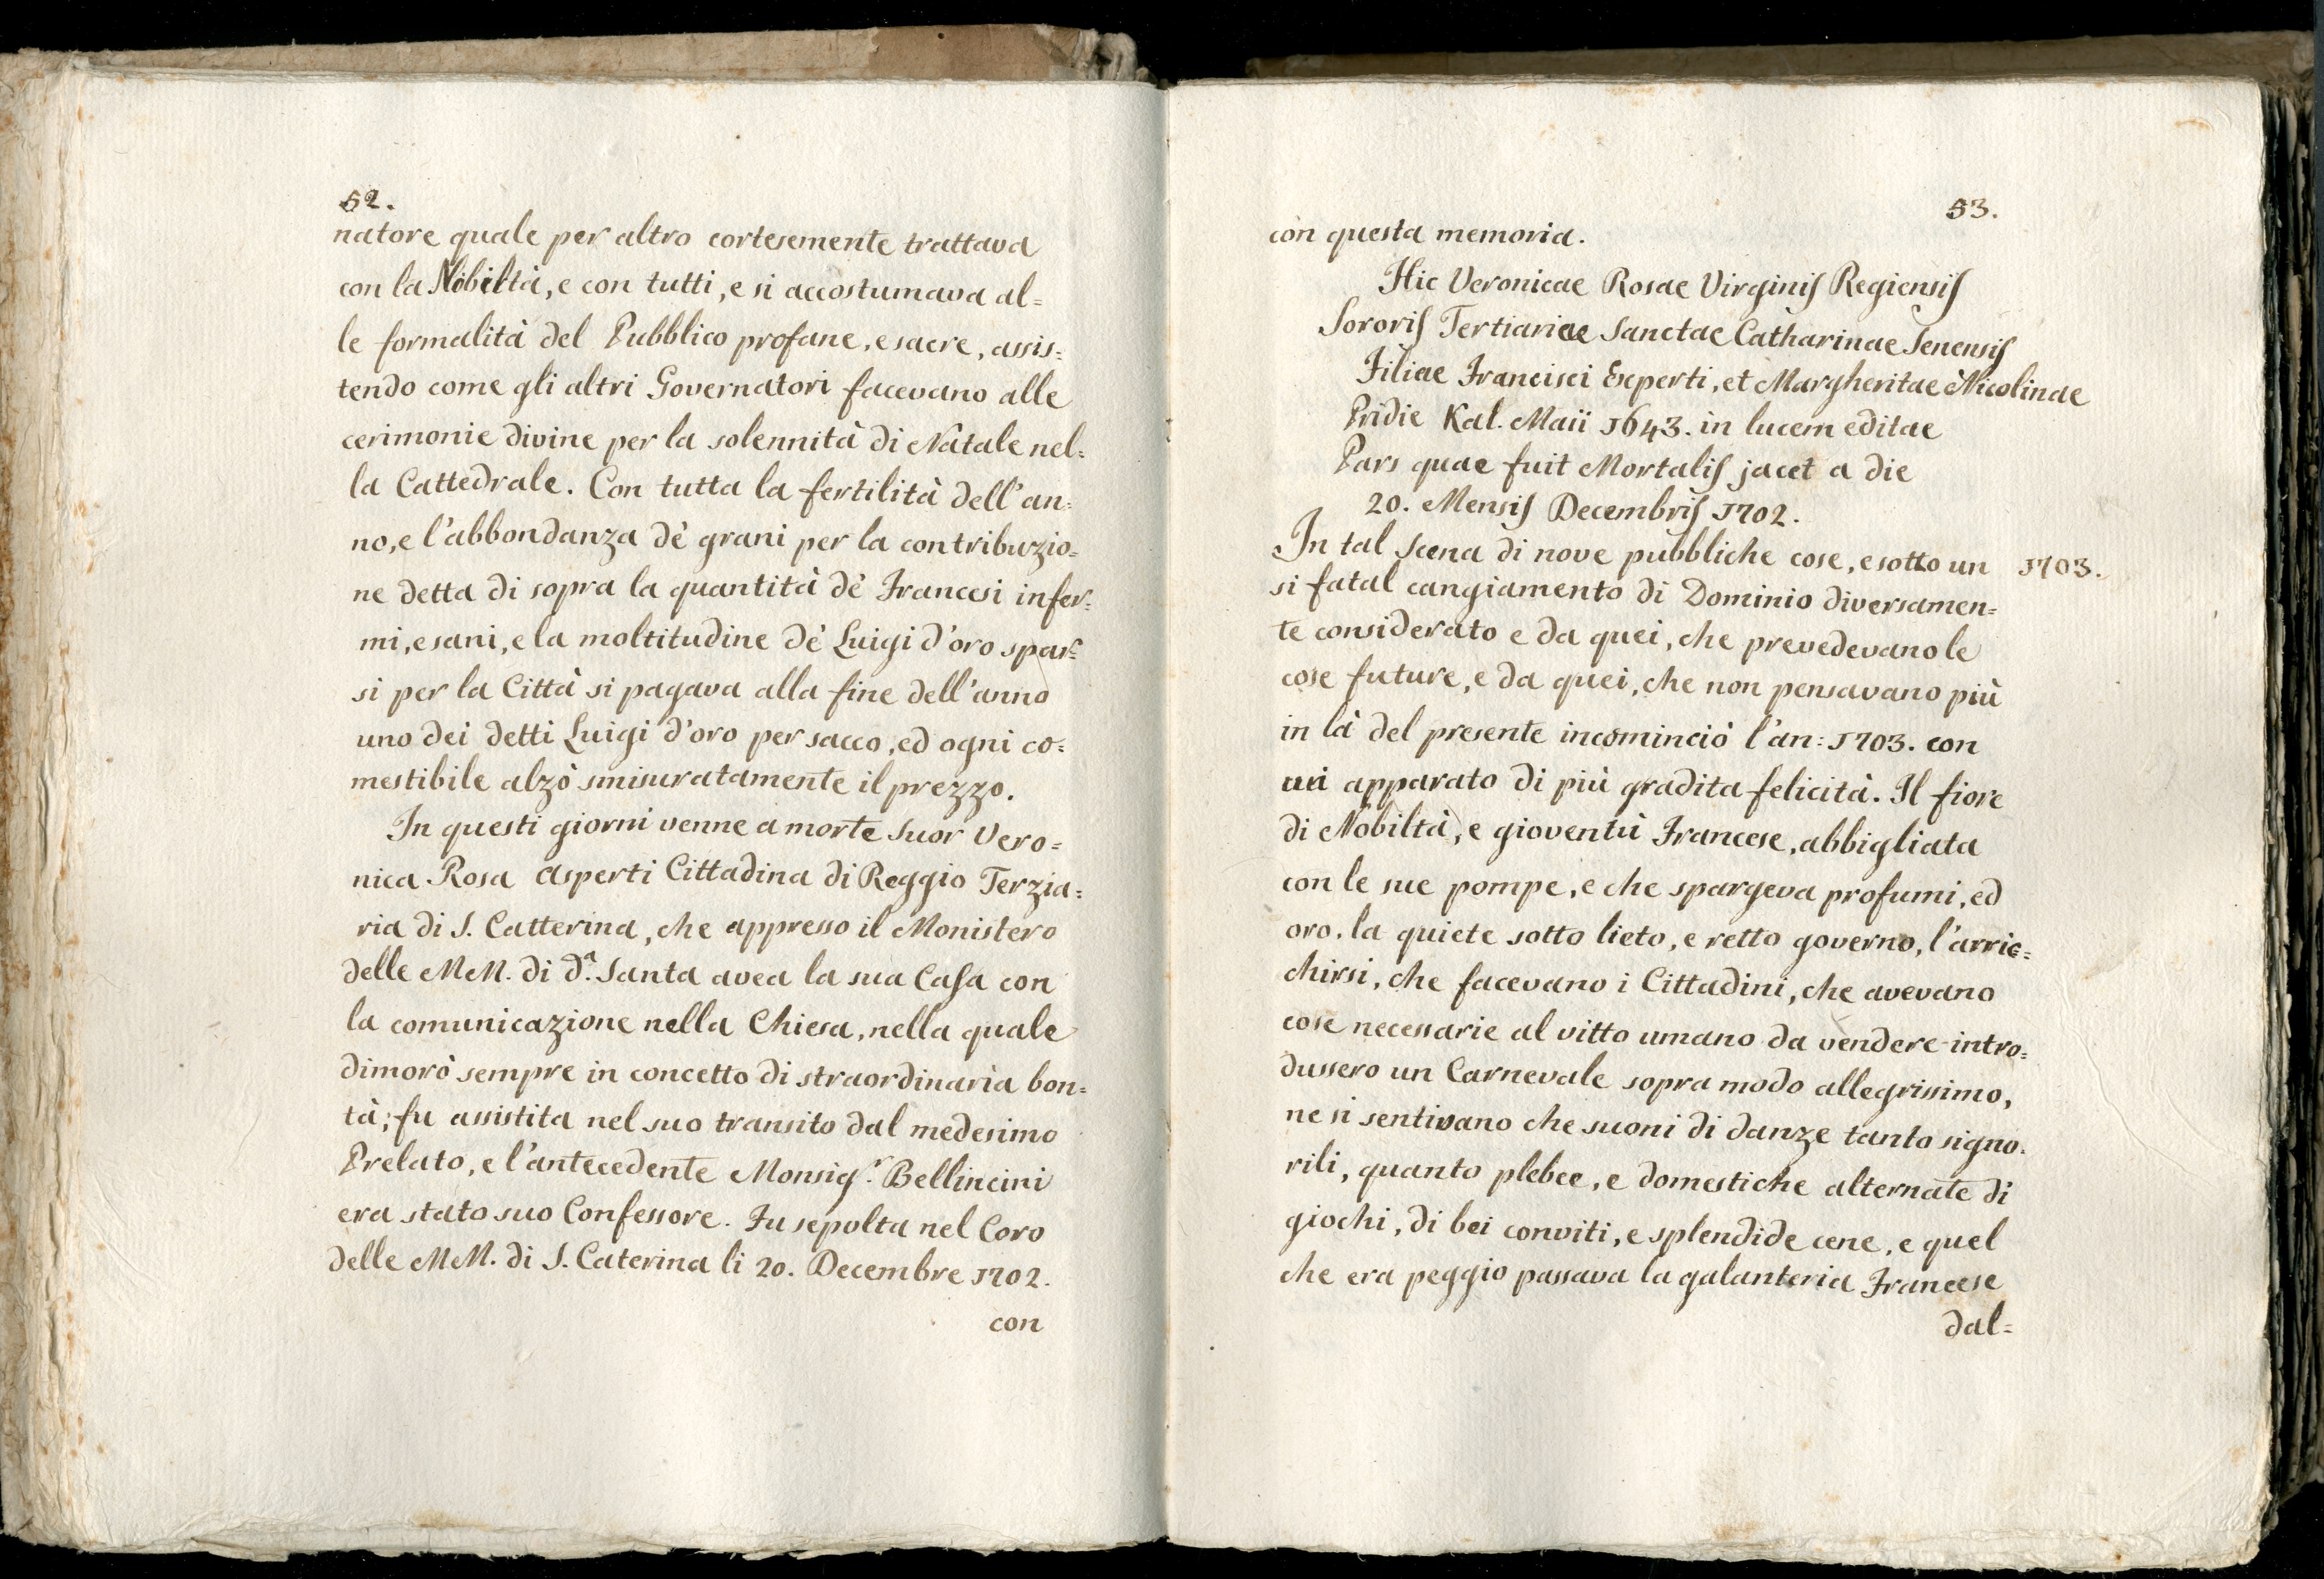 52.
natore quale per altro cortesemente trattava
con la Nobiltà, e con tutti, e si accostumava al=
le formalità del Pubblico profane, e sacre, assis=
tendo come gli altri Governatori facevano alle
cerimonie divine per la solennità di Natale nel=
la Cattedrale. Con tutta la fertilità dell'an=
no, e l'abbondanza dè grani per la contribuzio=
ne detta di sopra la quantità dè Francesi infer=
mi, e sani, e la moltitudine dè Luigi d'oro spar=
si per la Città si pagava alla fine dell'anno
uno dei detti Luigi d'oro per sacco, ed ogni co=
mestibile alzò smisuratamente il prezzo.
In questi giorni venne a morte Suor Vero=
nica Rosa Asperti Cittadina di Reggio Terzia=
ria di S. Catterina, che appresso il Monistero
delle MM. di d.ª Santa avea la sua Casa con
la comunicazione nella Chiesa, nella quale
dimorò sempre in concetto di straordinaria bon=
tà; fu assistita nel suo transito dal medesimo
Prelato, e l'antecedente Monsig.r Bellincini
era stato suo Confessore. Fu sepolta nel Coro
delle MM. di S. Caterina li 20. Decembre 1702.
con
53.
con questa memoria.
Hic Veronicae Rosae Virginis Regiensis
Sororis Tertiariae Sanctae Catharinae Senensis
Filiae Francisci Experti, et Margheritae Nicolinae
Pridie Kal. Maii 1643. in lucem editae
Pars quae fuit Mortalis jacet a die
20. Mensis Decembris 1702.
In tal Scena di nove pubbliche cose, e sotto un 1703.
si fatal cangiamento di Dominio diversamen=
te considerato e da quei, che prevedevano le
cose future, e da quei, che non pensavano più
in là del presente incominciò l'an: 1703. con
un apparato di più gradita felicità. Il fiore
di Nobiltà, e gioventù Francese, abbigliata
con le sue pompe, e che spargeva profumi, ed
oro, la quiete sotto lieto, e retto governo, l'arric=
chirsi, che facevano i Cittadini, che avevano
cose necessarie al vitto umano da vendere intro=
dussero un Carnevale sopra modo allegrissimo,
ne si sentivano che suoni di danze tanto signo=
rili, quanto plebee, e domestiche alternate di
giochi, di bei conviti, e splendide cene, e quel
che era peggio passava la galanteria Francese
dal=